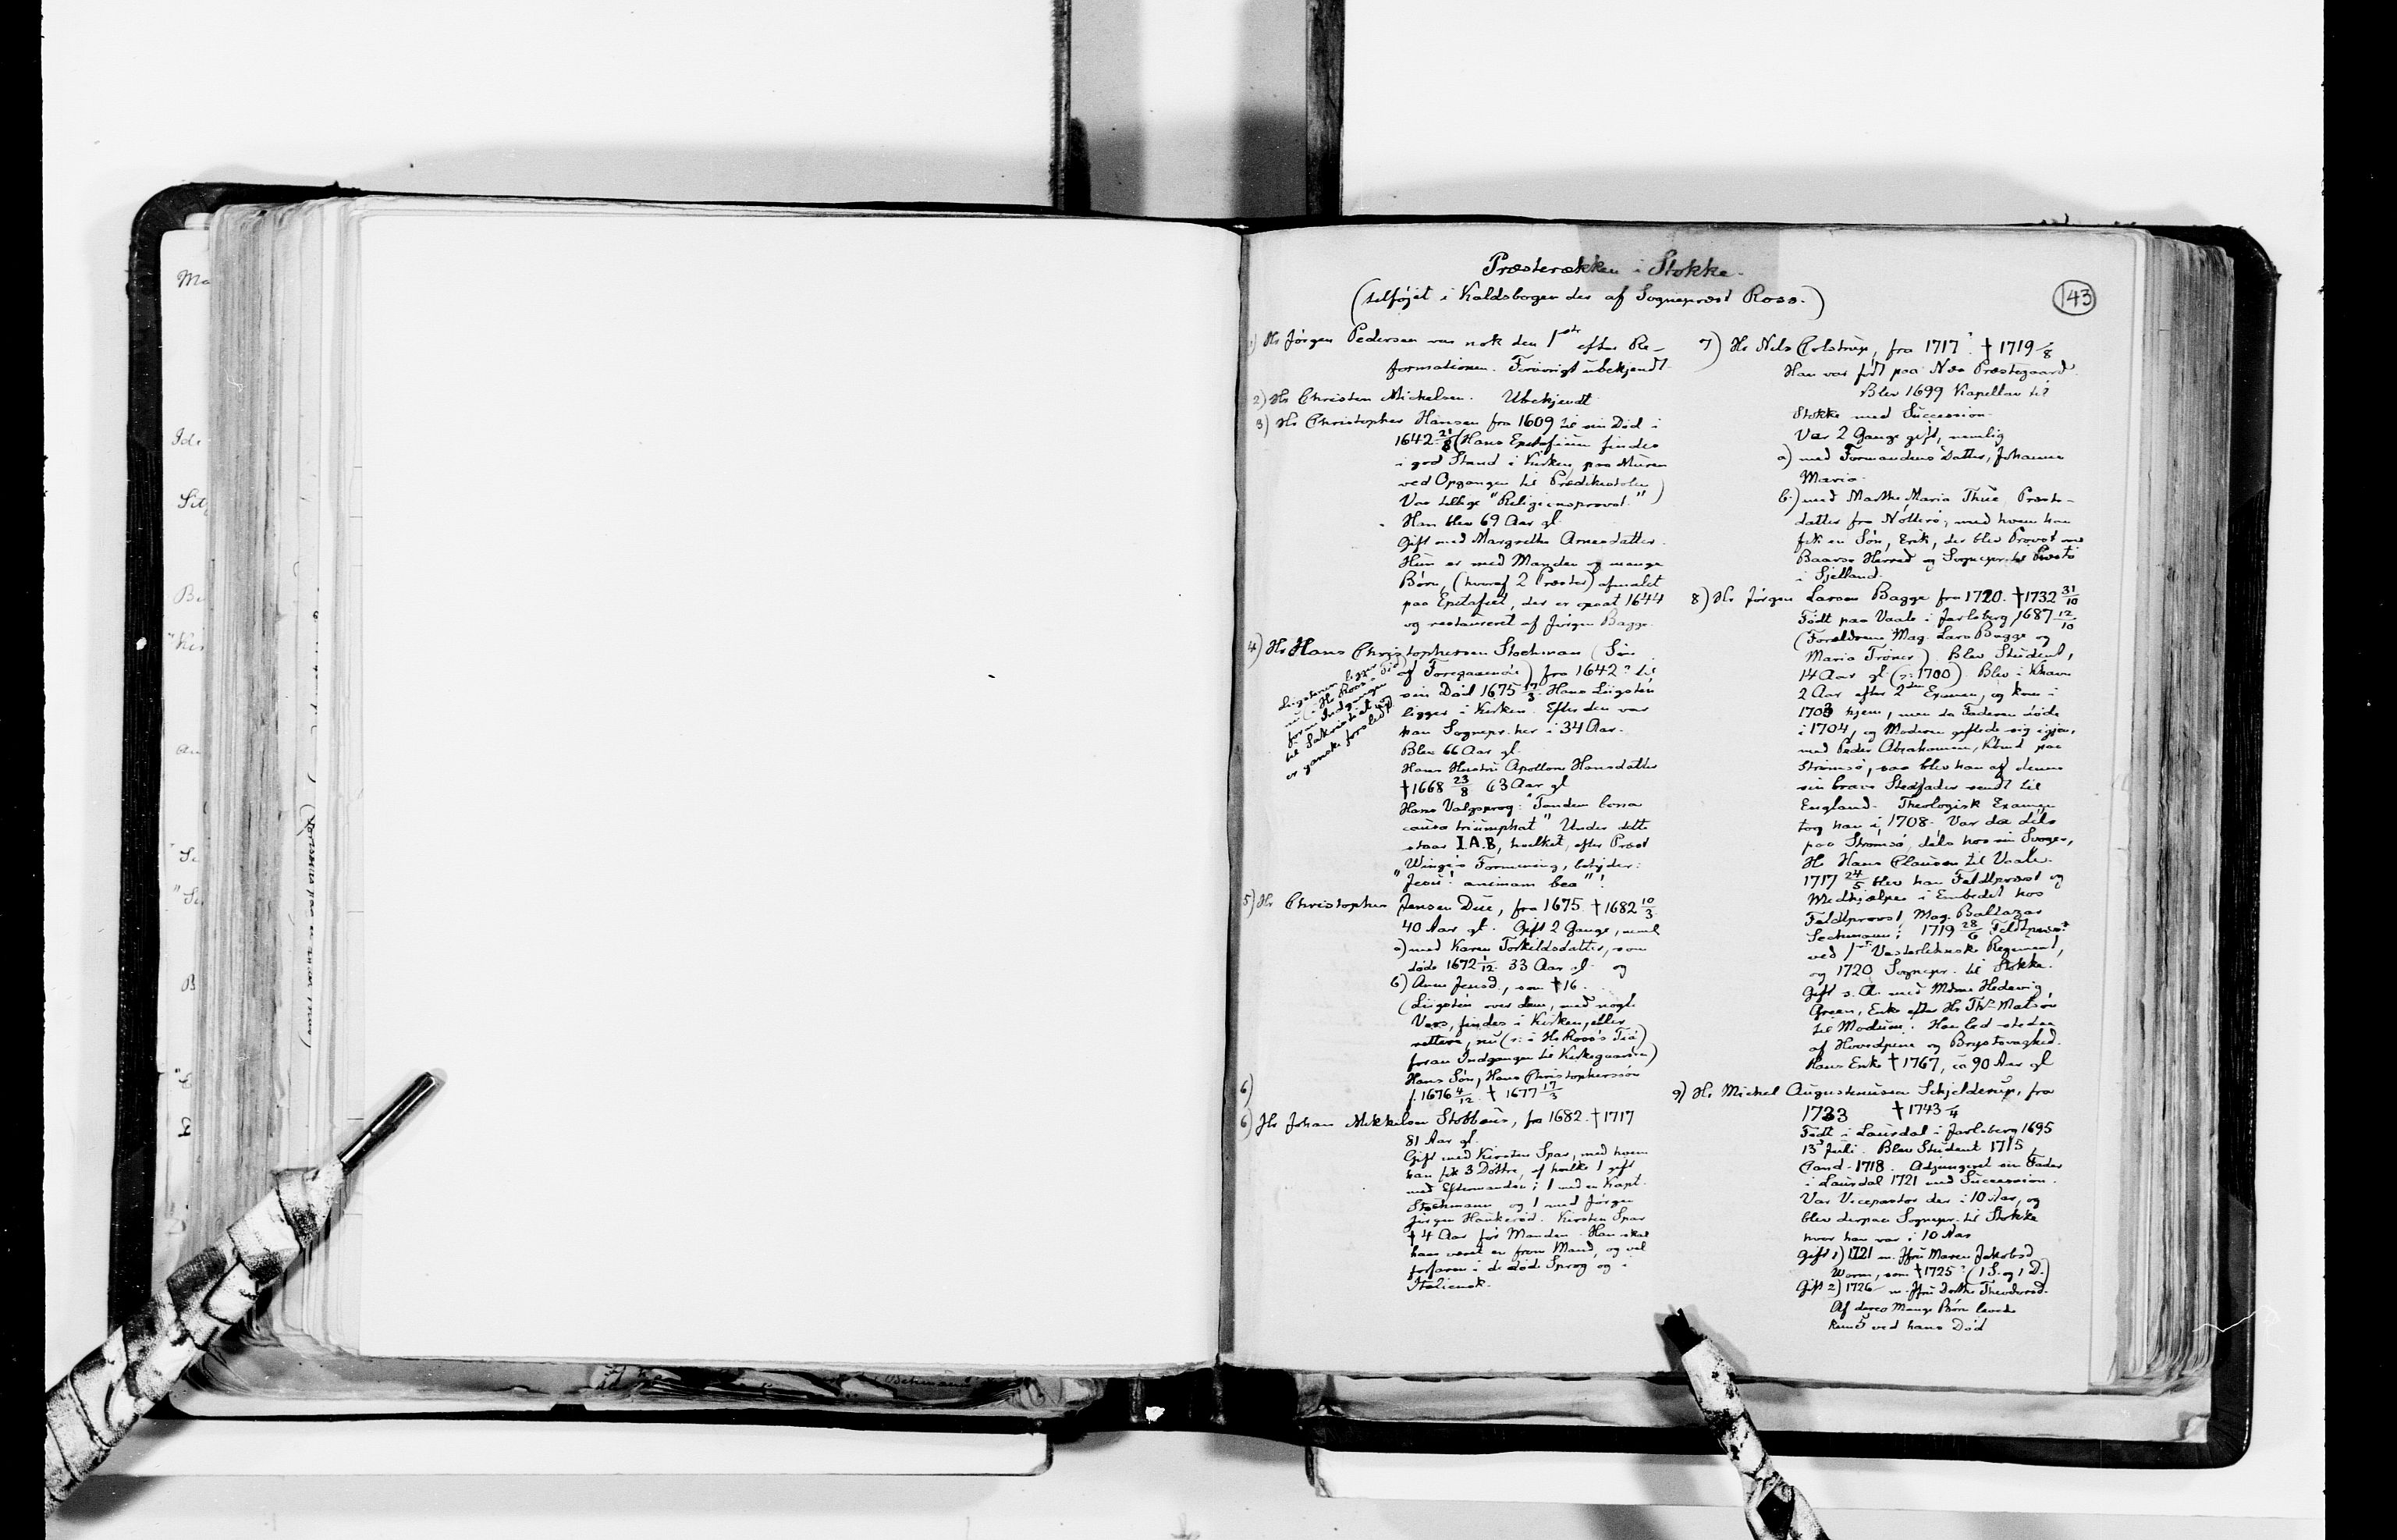 Præsterækken i Stokke.
(tilføjet i Kaldsbogen der af Sognepræst Ross.)
143
1) Hr Jörgen Pedersen var nok den 1ste efter Re-
formationen. Forøvrigt ubekjendt.
2) Hr Christen Mickelsen. Ubekjendt
3) Hr Christopher Hansen fra 1609 til sin Död i
1642 21/8 (Hans Epitafium findes
i god Stand i Kirken paa Muren
ved Opgangen til Prædikestolen)
Var tillige "Religionsprovst."
Han blev 69 Aar gl.
Gift med Margrethe Arnesdatter.
Hun er med Manden og mange
Börn, (hvoraf 2 Præster) afmalet
paa Epitafiet, der er opsat 1644
og restaureret af Jörgen Bagge.
4) Hr Hans Christophersen Stockman (Sön
af Foregaaende) fra 1642? til
sin Död 1675 17/3. Hans Ligsten
ligger i Kirken. Efter den var
han Sognepr. her i 34 Aar.
Blev 66 Aar gl.
Hans Hustru Apollone Hansdatter
†1668 23/8 63 Aar gl
Hans Valgsprog: "Tandem bona
causa triumphat" Under dette
staar I.A.B, hvilket, efter Præst
Winge's Formening, betyder:
"Jesu! animam bea"!
Ligstenen ligger
nu i Hr Ross's Tid
foran Indgangen
til Sakristiet og
er ganske forslidt.
5) Hr Christopher Jensen Due, fra 1675. †1682 10/3
40 Aar gl. Gift 2 Gange, neml
a) med Karen Torkildsdatter, som
döde 1672 1/12. 33 Aar gl. og
6) Anne Jensd., som †16 .
(Ligsten over dem, med nogle
Vers, findes i Kirken, eller
rettere, nu (: i Hr Ross's Tid)
foran Indgangen til Kirkegaarden)
6) Hans Sön, Hans Christophersön
f. 1676 4/12 † 1677 17/3
6) Hr Johan Mikkelsen Stobbæus, fra 1682. †1717
81 Aar gl.
Gift med Kirsten Spar, med hvem
han fik 3 Döttre, af hvilke 1 gift
med Eftermanden; 1 med en Kapt.
Stockmann og 1 med Jörgen
Jörgen Haukeröd. Kirsten Spar
† 4 Aar för Manden. Han skal
have været en from Mand, og vel
forfaren i de döde Sprog og i
Italiensk.
7) Hr Nils Colstrup, fra 1717. †1719 /8
Han var födt paa Næs Præstegaard.
Blev 1699 Kapellan til
Stokke med Succession.
Var 2 Gange gift, nemlig
a) med Formandens Datter, Johanne
Maria.
b.) med Marthe Maria Thue, Præste-
datter fra Nötterö, med hvem han
fik en Sön, Erik, der blev Provst over
Baarse Herred og Sognepr. til Præstö
i Sjelland.
8) Hr Jörgen Larsen Bagge fra 1720. †1732 31/10
Födt paa Vaale i Jarlsberg 1687 12/10
(Forældrene Mag. Lars Bagge og
Maria Tröner). Blev Student,
14 Aar gl. (: 1700) Blev i Khavn
2 Aar efter 2den Examen, og kom i
1703 hjem, men da Faderen döde
i 1704, og Moderen giftede sig igjen,
med Peder Abrahamsen, Kbmd paa
Strömsö, saa blev han af denne
sin brave Stedfader sendt til
England. Theologisk Examen
tog han i 1708. Var da dels
paa Strömsö, dels hos sin Svoger,
Hr Hans Clausen til Vaale.
1717 24/5 blev han Feldtpræst og
Medhjælper i Embedet hos
Feldtprovst, Mag. Baltazar
Seckmann; 1719 28/6 Feldtpræst
ved 1ste Vesterlehnske Regiment,
og 1720 Sognepr. til Stokke.
Gift s. A. med Mdme Hedevig
Green, Enke efter Hr Ths Matsön
til Modum. Han led stedse
af Hovedpine og Brystsvaghed.
Hans Enke †1767, ca 90 Aar gl
9) Hr Michel Augustinussen Schjelderup, fra
1733 †1743 /4
Födt i Laurdal i Jarlsberg 1695
13 Juli. Blev Student 1715,
Cand. 1718. Adjungeret sin Fader
i Laurdal 1721 med Succession.
Var Vicepastor der i 10 Aar, og
blev derpaa Sognepr. til Stokke
hvor han var i 10 Aar
Gift 1) 1721 m. Jfru Maren Jakobsd
Worm, som †1725? (1 S. og 1 D.)
Gift 2) 1726 m. Jfru Dorthe Theodorsd.
Af deres Mange Börn levede
kun 5 ved hans Död